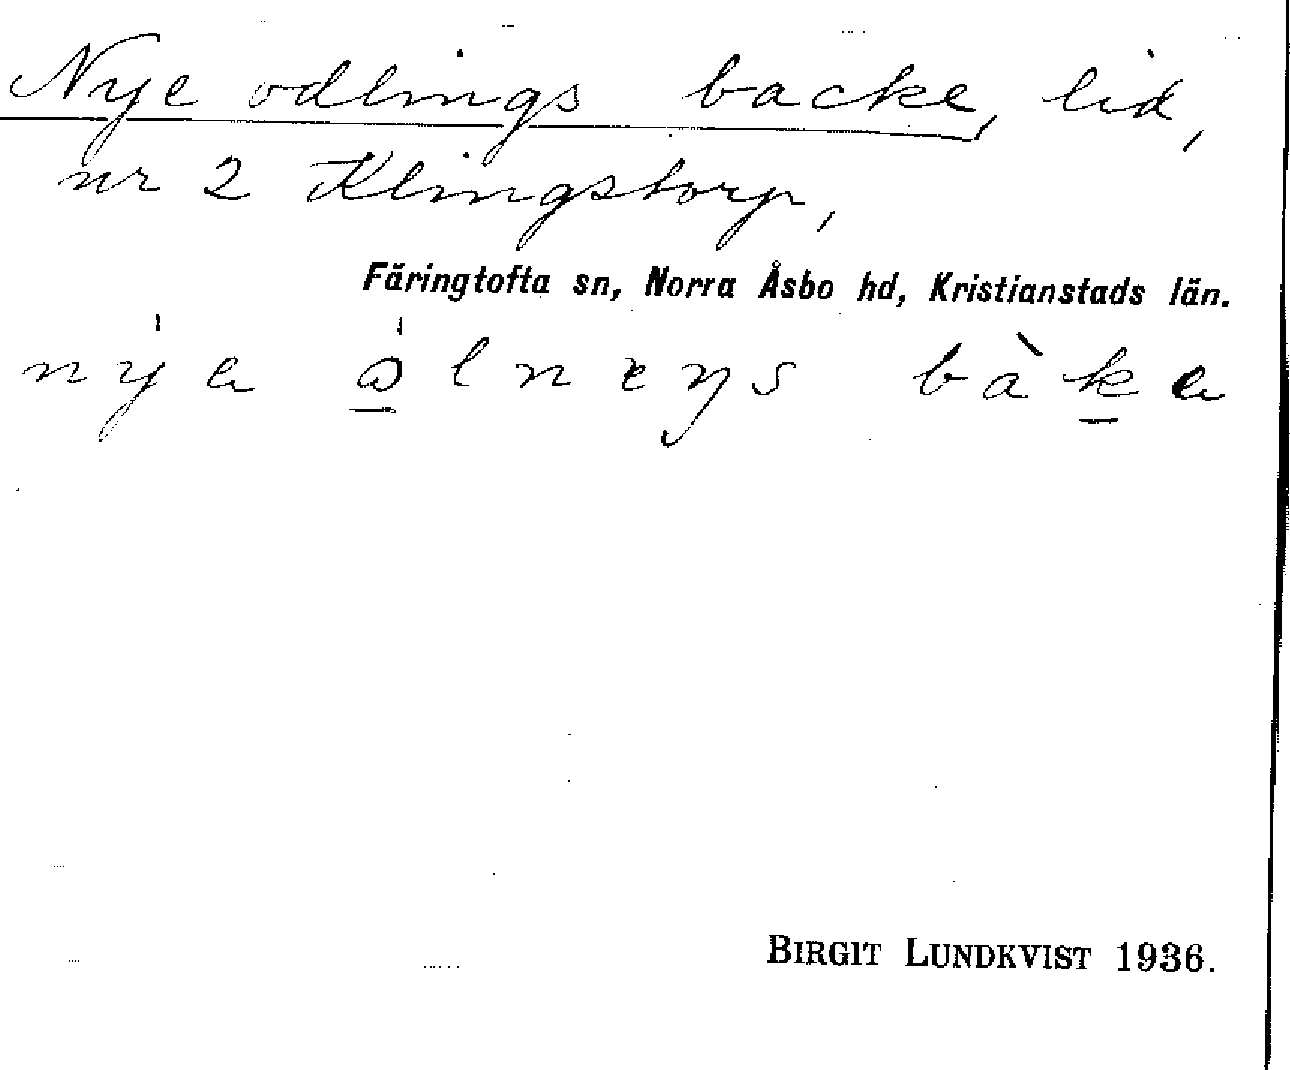 Nye odlings backe, lid,
nr 2 Klingstorp,
Färingtofta sn, Norra Åsbo hd, Kristianstads län.
bàka
BIRGIT LUNDKVIST 1936.